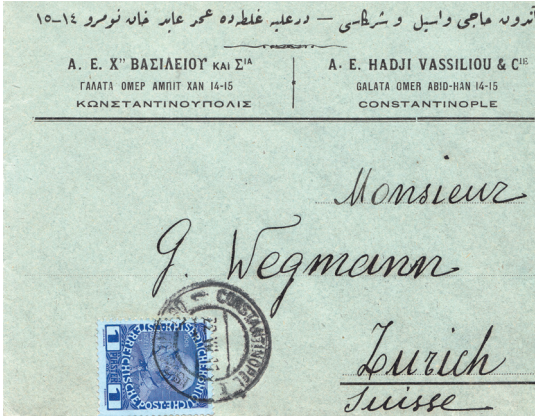 آندون حاجی واسیل و شرکاسی — در علیه غلطه ده عمر عابد خان نومرو ١٤-١٥
Α. Ε. Χ" ΒΑΣΙΛΕΙΟΥ ΚΑΙ ΣΙΑ
ΓΑΛΑΤΑ ΟΜΕΡ ΑΜΠΙΤ ΧΑΝ 14-15
ΚΩΝΣΤΑΝΤΙΝΟΥΠΟΛΙΣ
A. E. HADJI VASSILIOU & CIE
GALATA OMER ABID-HAN 14-15
CONSTANTINOPLE
Monsieur
G. Wegmann
Zurich
Suisse
CONSTANTINOPEL
1 PIASTER 1